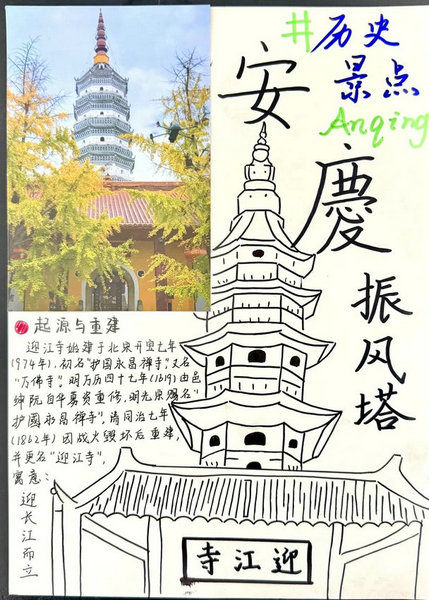 #历史
景点
Anqing
安慶
振风塔
起源与重建
迎江寺始建于北宋开宝七年
(974年),初名"护国永昌禅寺",又名
"万佛寺"。明万历四十七年(1619)由邑
绅阮自华募资重修,明光宗赐名"
护國永昌禅寺",清同治七年
(1862年)因战火毁坏后重建,
并更名"迎江寺",
寓意:
迎长江而立
寺江迎